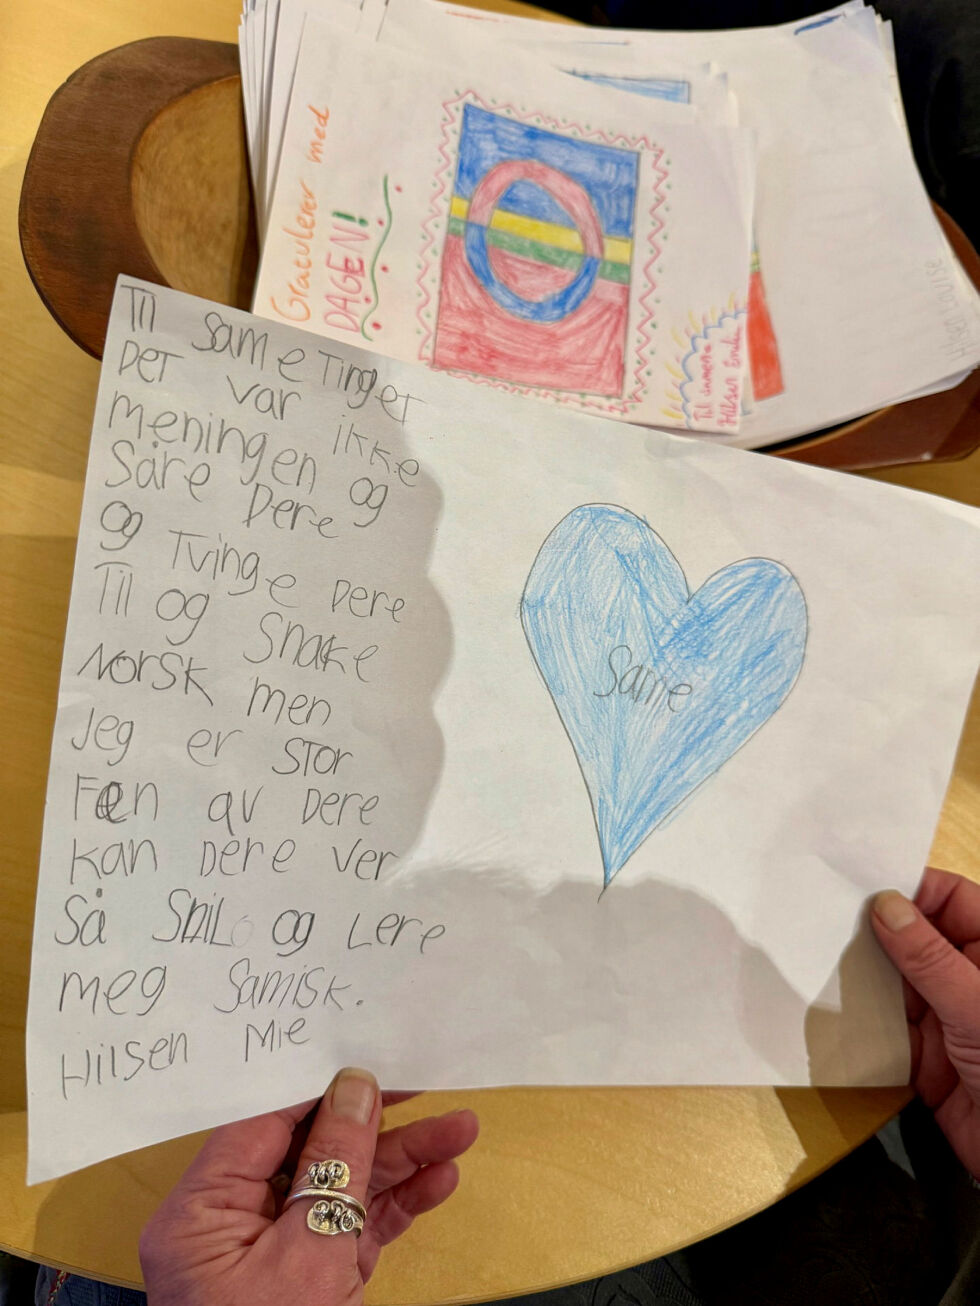 Gratulerer med
DAGEN!
Til samene
Hilsen
Til sameTinget
Det var ikke
meningen og
Såre Dere
og Tvinge Dere
Til og snake
Norsk men
Jeg er stor
Fæn av Dere
kan Dere ver
Så Snil og Lere
meg Samisk.
Hilsen Mie
Same